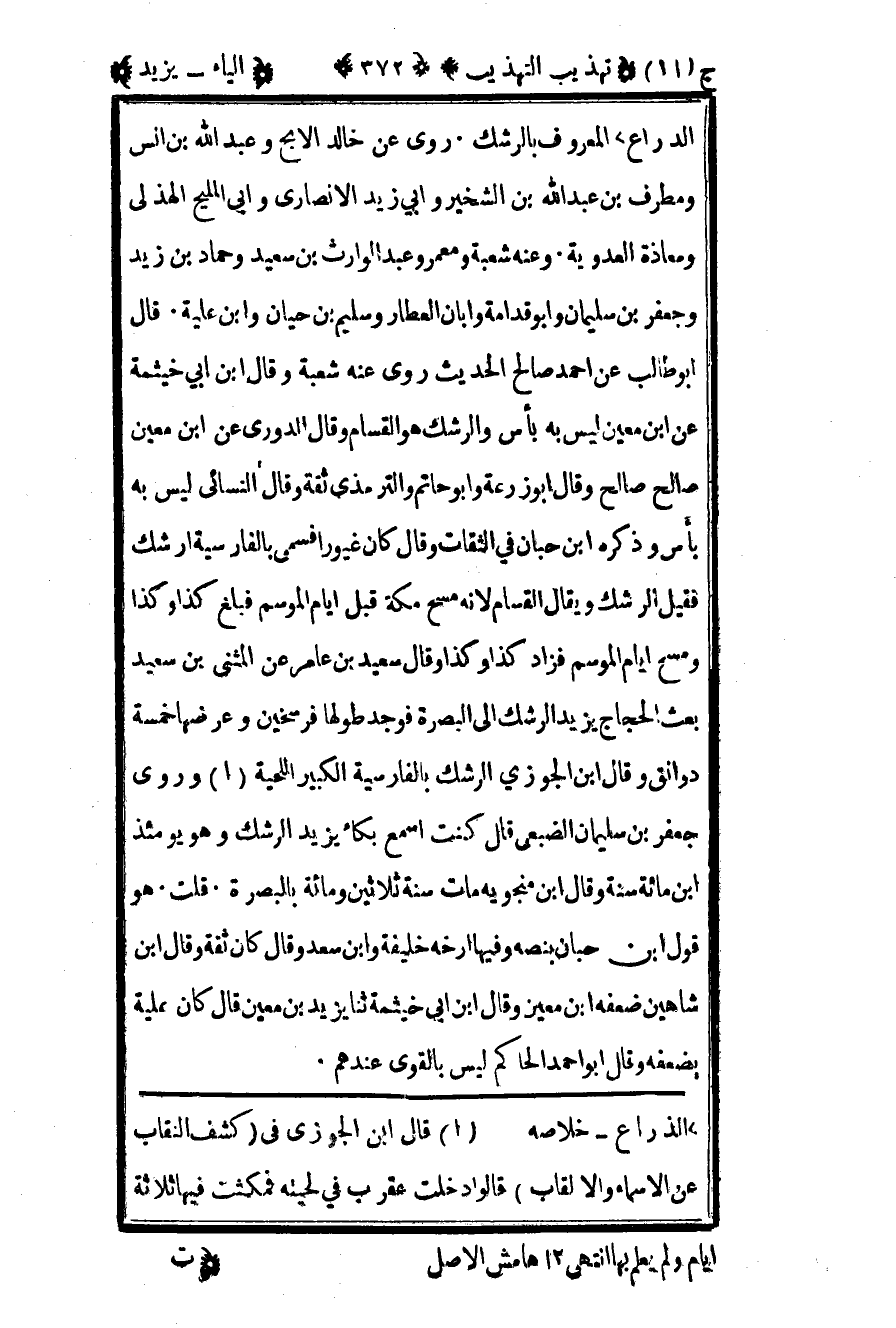 ج (١١) تهذيب التهذيب ﴿ ٣٧٢ ﴾ الياء ـ يزيد
الدراع> المعروف بالرشك ٠ روى عن خالد الاشج وعبد الله بن انس
ومطرف بن عبدالله بن الشخير وابي زيد الانصارى وابي المليح الهذلى
ومعاذة العدوية ٠ وعنه شعبة ومعمر وعبد الوارث بن سعيد وحماد بن زيد
وجعفر بن سليمان وابوقدامة وابان العطار وسليم بن حيان وابن علية ٠ قال
ابوطالب عن احمد صالح الحديث روى عنه شعبة وقال ابن ابي خيثمة
عن ابن معين ليس به بأس والرشك هو القسام وقال الدورى عن ابن معين
صالح صالح وقال ابوزرعة وابوحاتم والترمذي ثقة وقال النسائى ليس به
بأس وذكره ابن حبان في الثقات وقال كان غيورا فسمى بالفارسية ارشك
فقيل الرشك ويقال القسام لانه مسح مكة قبل ايام الموسم فبلغ كذا وكذا
ومسح ايام الموسم فزاد كذا وكذا وقال سعيد بن عامر عن المثنى بن سعيد
بعث الحجاج يزيد الرشك الى البصرة فوجد طولها فرسخين وعرضها خمسة
دوانق وقال ابن الجوزي الرشك بالفارسية الكبير اللحية (١) وروى
جعفر بن سليمان الضبعى قال كنت اسمع بكاء يزيد الرشك وهو يومئذ
ابن مائة سنة وقال ابن منجويه مات سنة ثلاثين ومائة بالبصرة ٠ قلت ٠ هو
قول ابن حبان بنصه وفيها ارخه خليفة وابن سعد وقال كان ثقة وقال ابن
شاهين ضعفه ابن معين وقال ابن ابي خيثمة ثنا يزيد بن معين قال كان علية
يضعفه وقال ابو احمد الحاكم ليس بالقوى عندهم ٠
>الذراع ـ خلاصه (١) قال ابن الجوزى فى (كشف النقاب
عن الاسماء والالقاب) قالوا دخلت عقرب في لحيته فمكثت فيها ثلاثة
ايام ولم يعلم بها انتهى ١٢ هامش الاصل ت